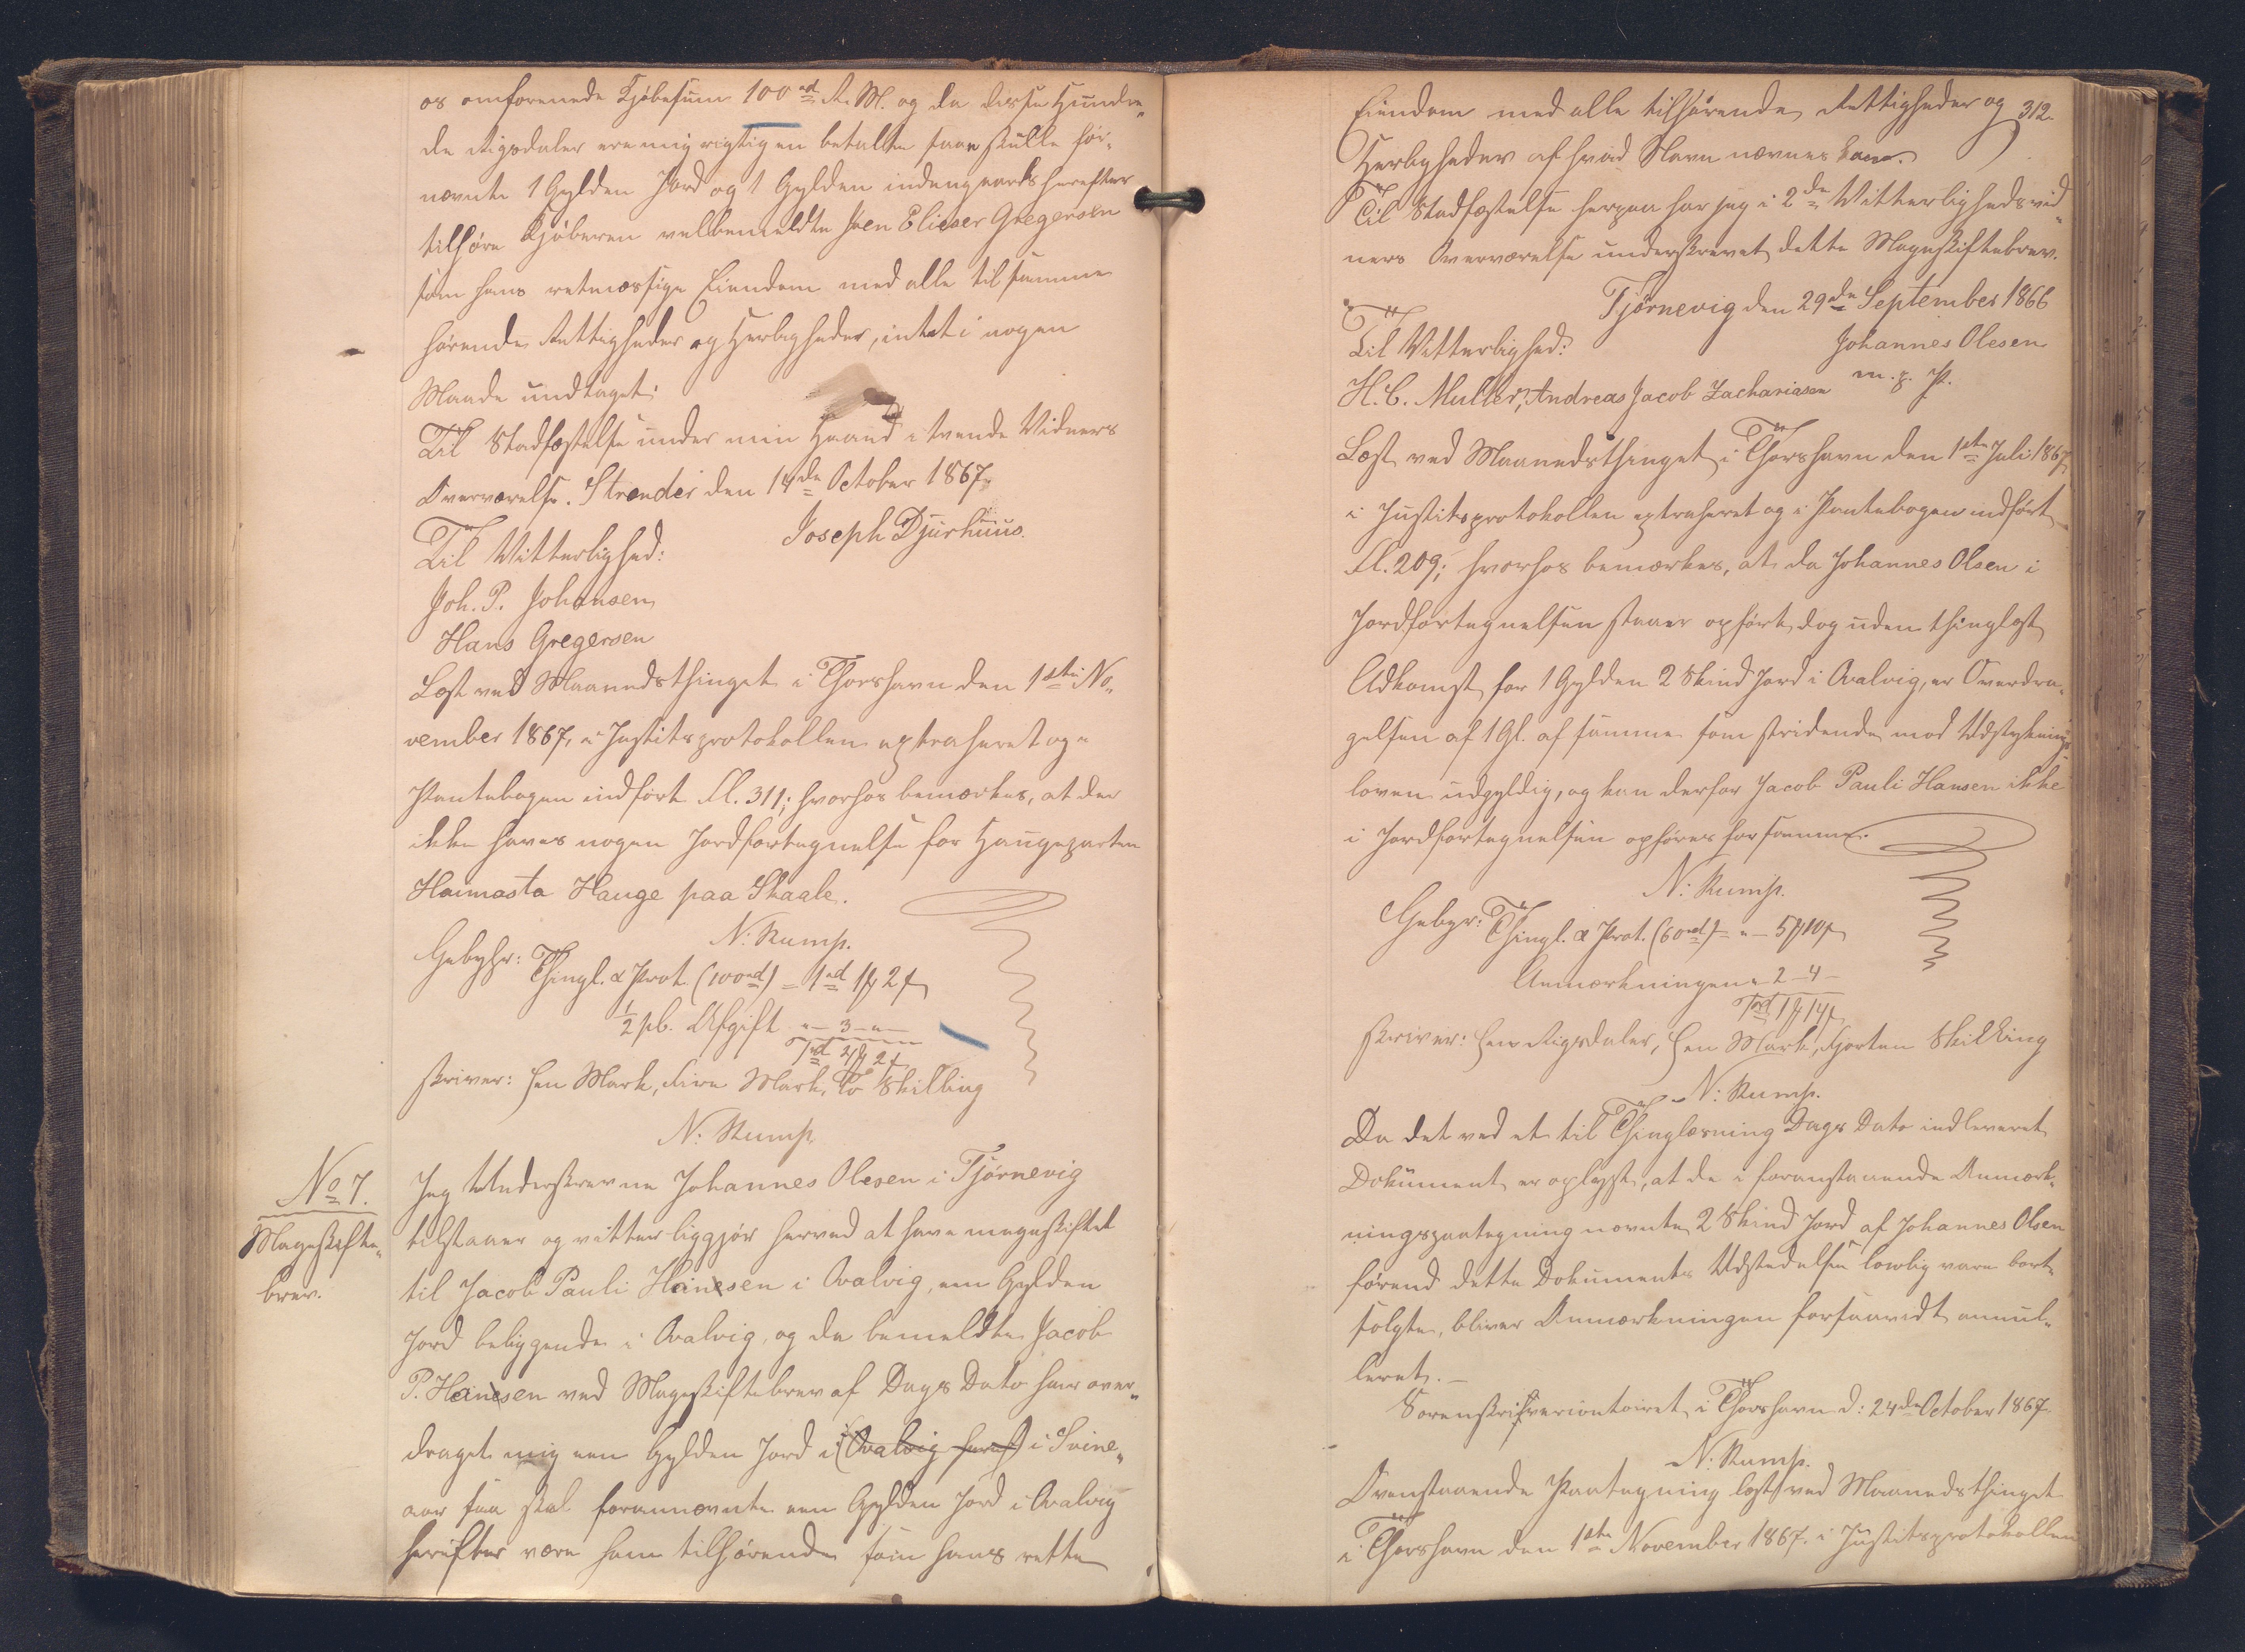 os omforenede Kjøbesum 100 rd R. M. og da disse Hundre„
de Rigsdaler ere mig rigtigen betalte saa skulle før„
nævnte 1 Gylden Jord og 1 Gylden indengaards herefter
tilhøre Kjøberen velbemeldte Joen Elieser Gregersen
som hans retmæssige Eiendom med alle til samme
hørende Rettigheder og Herligheder, intet i nogen
Maade undtaget.
Til Stadfæstelse under min Haand i tvende Vidners
Overværelse. Strænder den 14de October 1867.
Joseph Djurhuus.
Til Vitterlighed:
Joh. P. Johansen
Hans Gregersen
Læst ved Maanedsthinget i Thorshavn den 1ste No„
vember 1867, i Justitsprotokollen extraheret og i
Pantebogen indført Fl. 311; hvorhos bemærkes, at der
ikke haves nogen Jordfortegnelse for Haugeparten
Heimasta Hauge paa Skaale.
N: Rump.
Gebyhr: Thingl. & Prot. (100 rd) = 1 rd 1 ꝳ 2 ß
½ pC. Afgift " — 3 — " —
1 rd 4 ꝳ 2 ß
skriver: Een Mark, Fire Mark, To Skilling
N: Rump
No 7.
Mageskifte„
brev.
Jeg Underskrevne Johannes Olesen i Tjørnevig
tilstaaer og vitterliggjør herved at have mageskiftet
til Jacob Pauli Heinesen i Qvalvig, een Gylden
Jord beliggende i Qvalvig, og da bemeldte Jacob
P. Heinesen ved Mageskiftebrev af Dags Dato har over„
draget mig een Gylden Jord i (Qvalvig heraf) i Svine„
aar saa skal forannævnte een Gylden Jord i Qvalvig
herefter være ham tilhørende som hans rette
312.
Eiendom med alle tilhørende Rettigheder og
Herligheder af hvad Navn nævnes kan.
Til Stadfæstelse herpaa har jeg i 2de Vitterlighedsvid„
ners Overværelse underskrevet dette Mageskiftebrev.
Tjørnevig den 29de September 1866
Til Vitterlighed: Johannes Olesen
H. C. Muller, Andreas Jacob Zachariasen m. p. P.
Læst ved Maanedsthinget i Thorshavn den 1ste Juli 1867
i Justitsprotokollen extraheret og i Pantebogen indført
Fl. 209; hvorhos bemærkes, at da Johannes Olsen i
Jordfortegnelsen staaer opført, dog uden thinglæst
Adkomst, for 1 Gylden 2 Skind Jord i Qvalvig, er Overdra„
gelsen af 1 Gl. af samme som stridende mod Udstyknings„
loven udgyldig, og kan derfor Jacob Pauli Hansen ikke
i Jordfortegnelsen opføres for samme.
N: Rump.
Gebyr: Thingl. & Prot. (60 rd) = " — 5 ꝳ 10 ß
Anmærkningen " 2 — 4 —
1 rd 1 ꝳ 14 ß
skriver: Een Rigsdaler, Een Mark, Fjorten Skilling
N: Rump.
Da det ved et til Thinglæsning Dags Dato indleveret
Dokument er oplyst, at de i foranstaaende Anmærk„
ningspaategning nævnte 2 Skind Jord af Johannes Olsen
førend dette Dokuments Udstedelse lovlig vare bort„
solgte, bliver Anmærkningen forsaavidt annul„
leret. —
Sorenskrifvericontoiret i Thorshavn d: 24de October 1867.
N: Rump.
Ovenstaaende Paategning læst ved Maanedsthinget
i Thorshavn den 1ste November 1867. i Justitsprotokollen